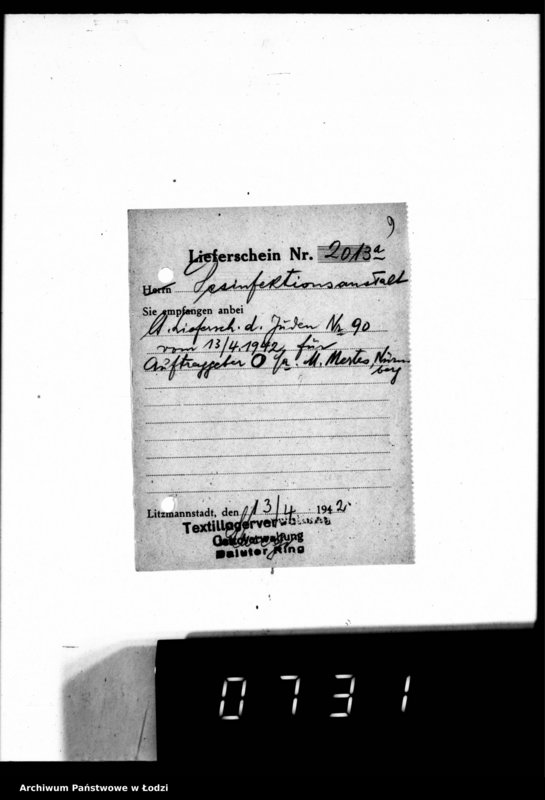 9
Lieferschein Nr. 2013a
Herrn Desinfektionsanstalt
Sie empfangen anbei
lt. Liefersch. d. Juden Nr 90
vom 13/4.1942, für
Auftraggeber O Fa. M. Mertes, Nürn
berg
Litzmannstadt, den 13/4 1942.
Textillagerverwaltung
Gettoverwaltung
Baluter Ring
0731
Archiwum Państwowe w Łodzi